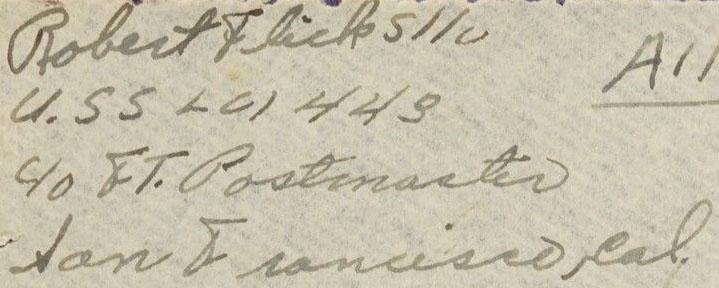 Robert Flick S1/c
U.S.S LCI 443
c/o FT. Postmaster
San Francisco, Cal.